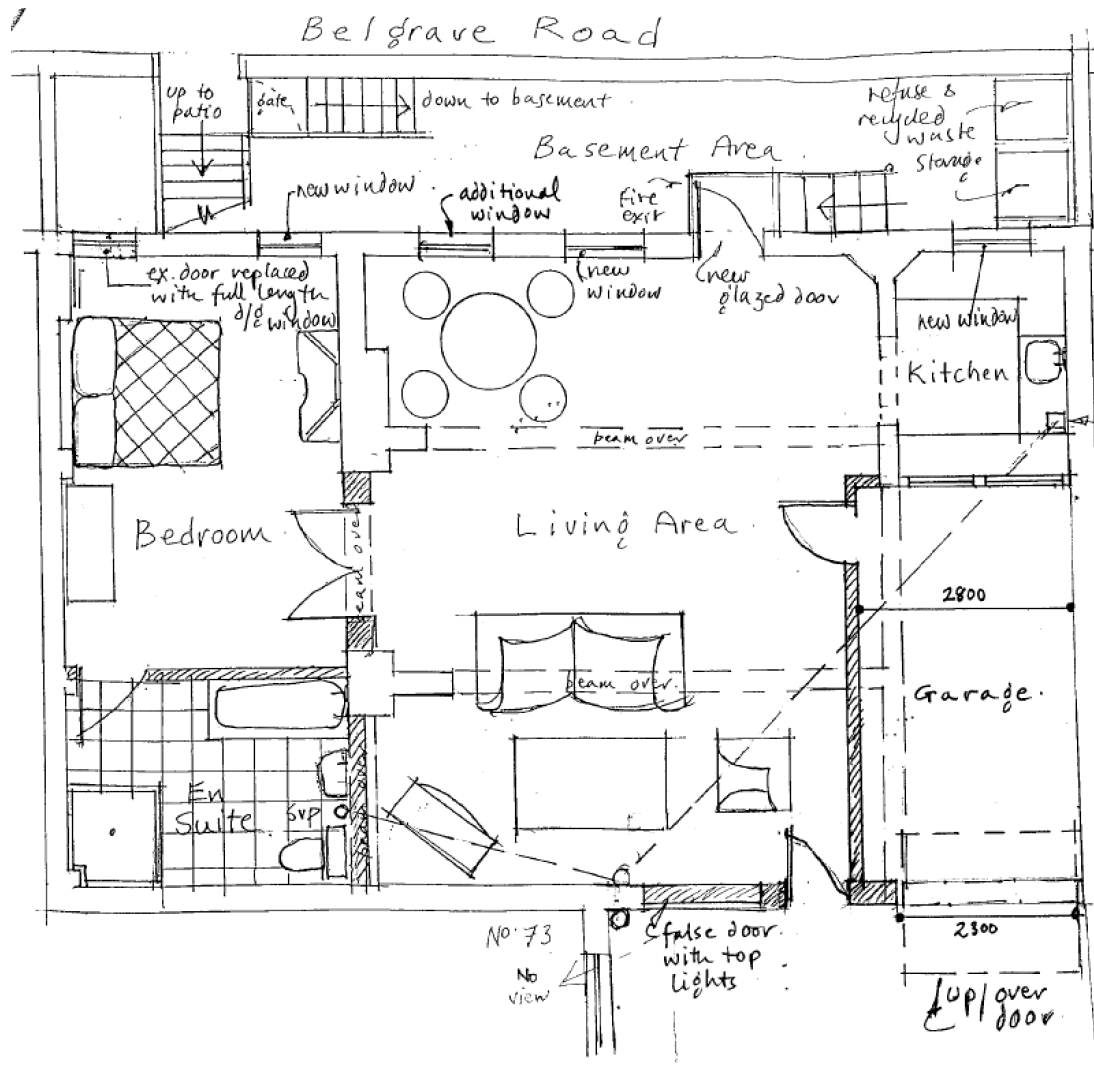 Belgrave Road
up to
patio
gate
down to basement
refuse &
recycled
waste
storage
Basement Area
new window
additional
window
fire
exit
ex. door replaced
with full length
d/g window
new
window
new
glazed door
new window
Kitchen
beam over
Bedroom
beam over
Living Area
2800
beam over
Garage
En
Suite
SVP
No. 73
No
view
false door
with top
lights
2300
up/over
door